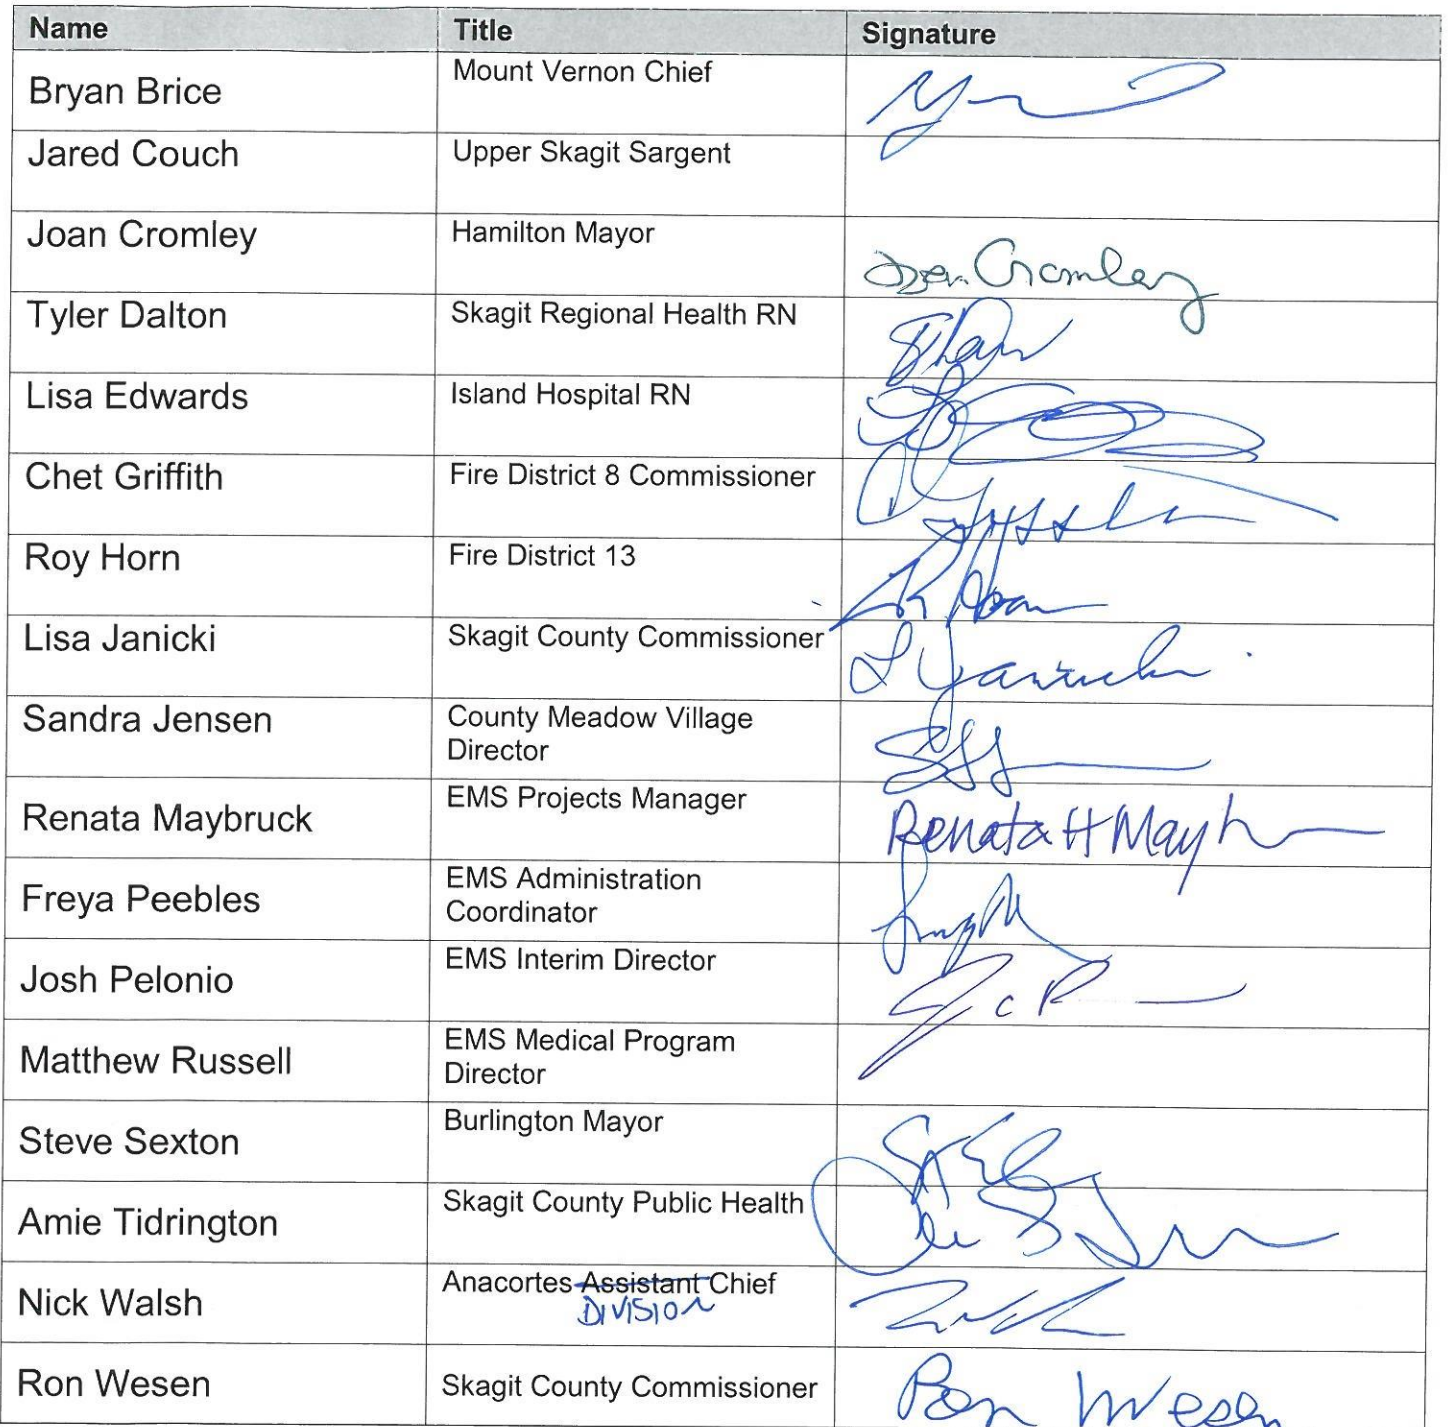 Name Title Signature
Bryan Brice Mount Vernon Chief
Jared Couch Upper Skagit Sargent
Joan Cromley Hamilton Mayor Joan Cromley
Tyler Dalton Skagit Regional Health RN
Lisa Edwards Island Hospital RN
Chet Griffith Fire District 8 Commissioner
Roy Horn Fire District 13 R Horn
Lisa Janicki Skagit County Commissioner L Janicki
Sandra Jensen County Meadow Village
Director
Renata Maybruck EMS Projects Manager Renata H May
Freya Peebles EMS Administration
Coordinator
Josh Pelonio EMS Interim Director
Matthew Russell EMS Medical Program
Director
Steve Sexton Burlington Mayor
Amie Tidrington Skagit County Public Health
Nick Walsh Anacortes Assistant Chief
DIVISION
Ron Wesen Skagit County Commissioner Ron Wesen